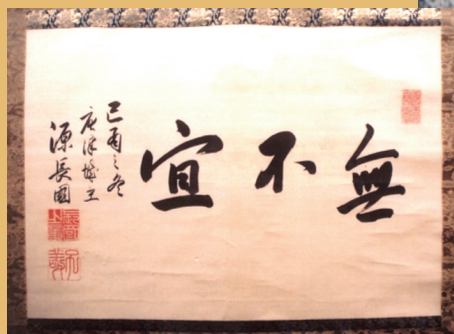 無不宜
己酉之冬
唐津城主
源長國